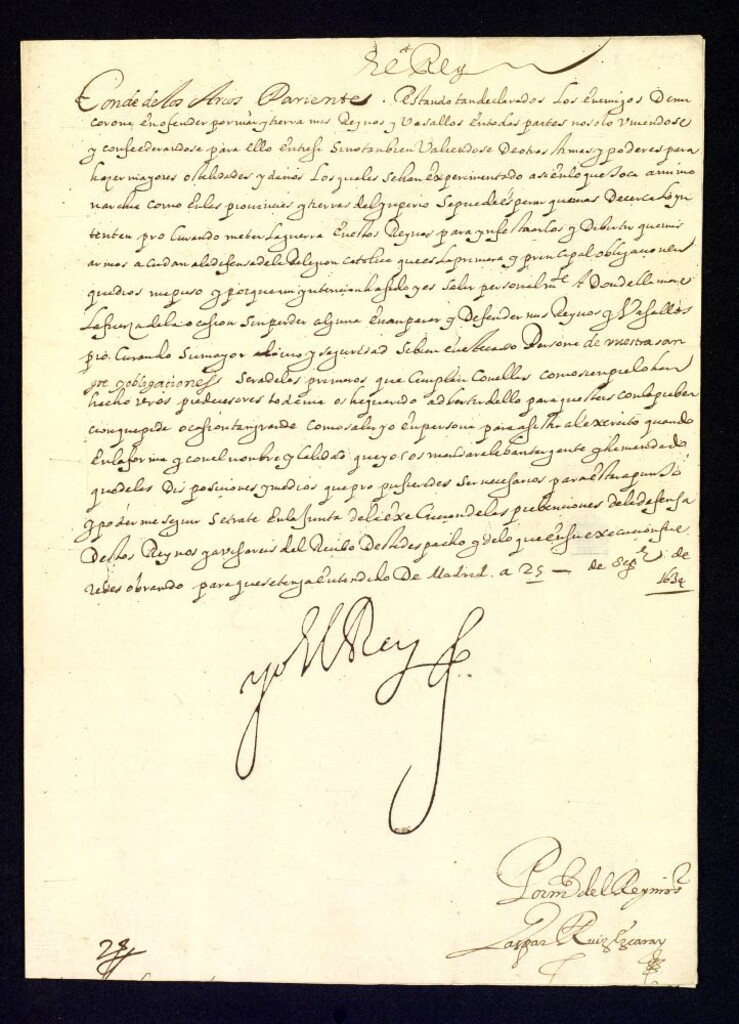 El Rey
Conde de los Arcos Pariente. Estando tan declarados los enemigos de mi
corona en ofender por mar y tierra mis Reynos y Vasallos en todas partes no solo Uniendose
y confederandose para ello entresi Sino tanbien Valiendose de otras Armas y poderes para
hazer mayores ostilidades y daños Los quales se han experimentado asi en lo que toca a mi mo
narchia como en las provincias y tierras del ymperio Se puede esperar que mas de cerca lo yn
tenten procurando meter la guerra en estos Reynos para ynfestarlos y divertir que mis
armas acudan a la defensa de la Religion catolica que es la primera y principal obligacion en
que dios me puso y porque mi yntencion ha sido y es salir personalmte A Donde llamare
la fuerza de la ocasion Sin perder alguna en anparar y Defender mis Reynos y Vasallos
procurando Su mayor alivio y seguridad Persona de vuestra san
gre y obligaciones Sera de los primeros que Cunplan Con ellas como sienpre lo han
hecho vros predecesores todavia os he querido advertir dello para que esteis con la preben
cion que pide ocasion tan grande Como salir yo en persona para asistir al exercito quando
En la forma y con el nonbre y Calidad que yo os mandare lebantar gente y he mandado
que de las Disposiciones y medios que propusieredes Ser necesarios para estar a punto
y poderme seguir Se trate En la Junta de la execucion de las prebenciones de la defensa
Destos Reynos y avisareis del Recibo Deste despacho y de lo que en su execucion fue
redes obrando para que se tenga entendido De Madrid a 25 de Sepre de
1634
yo El Rey
Por mdo del Rey nro sr
Gaspar Ruiz Ezcaray
28